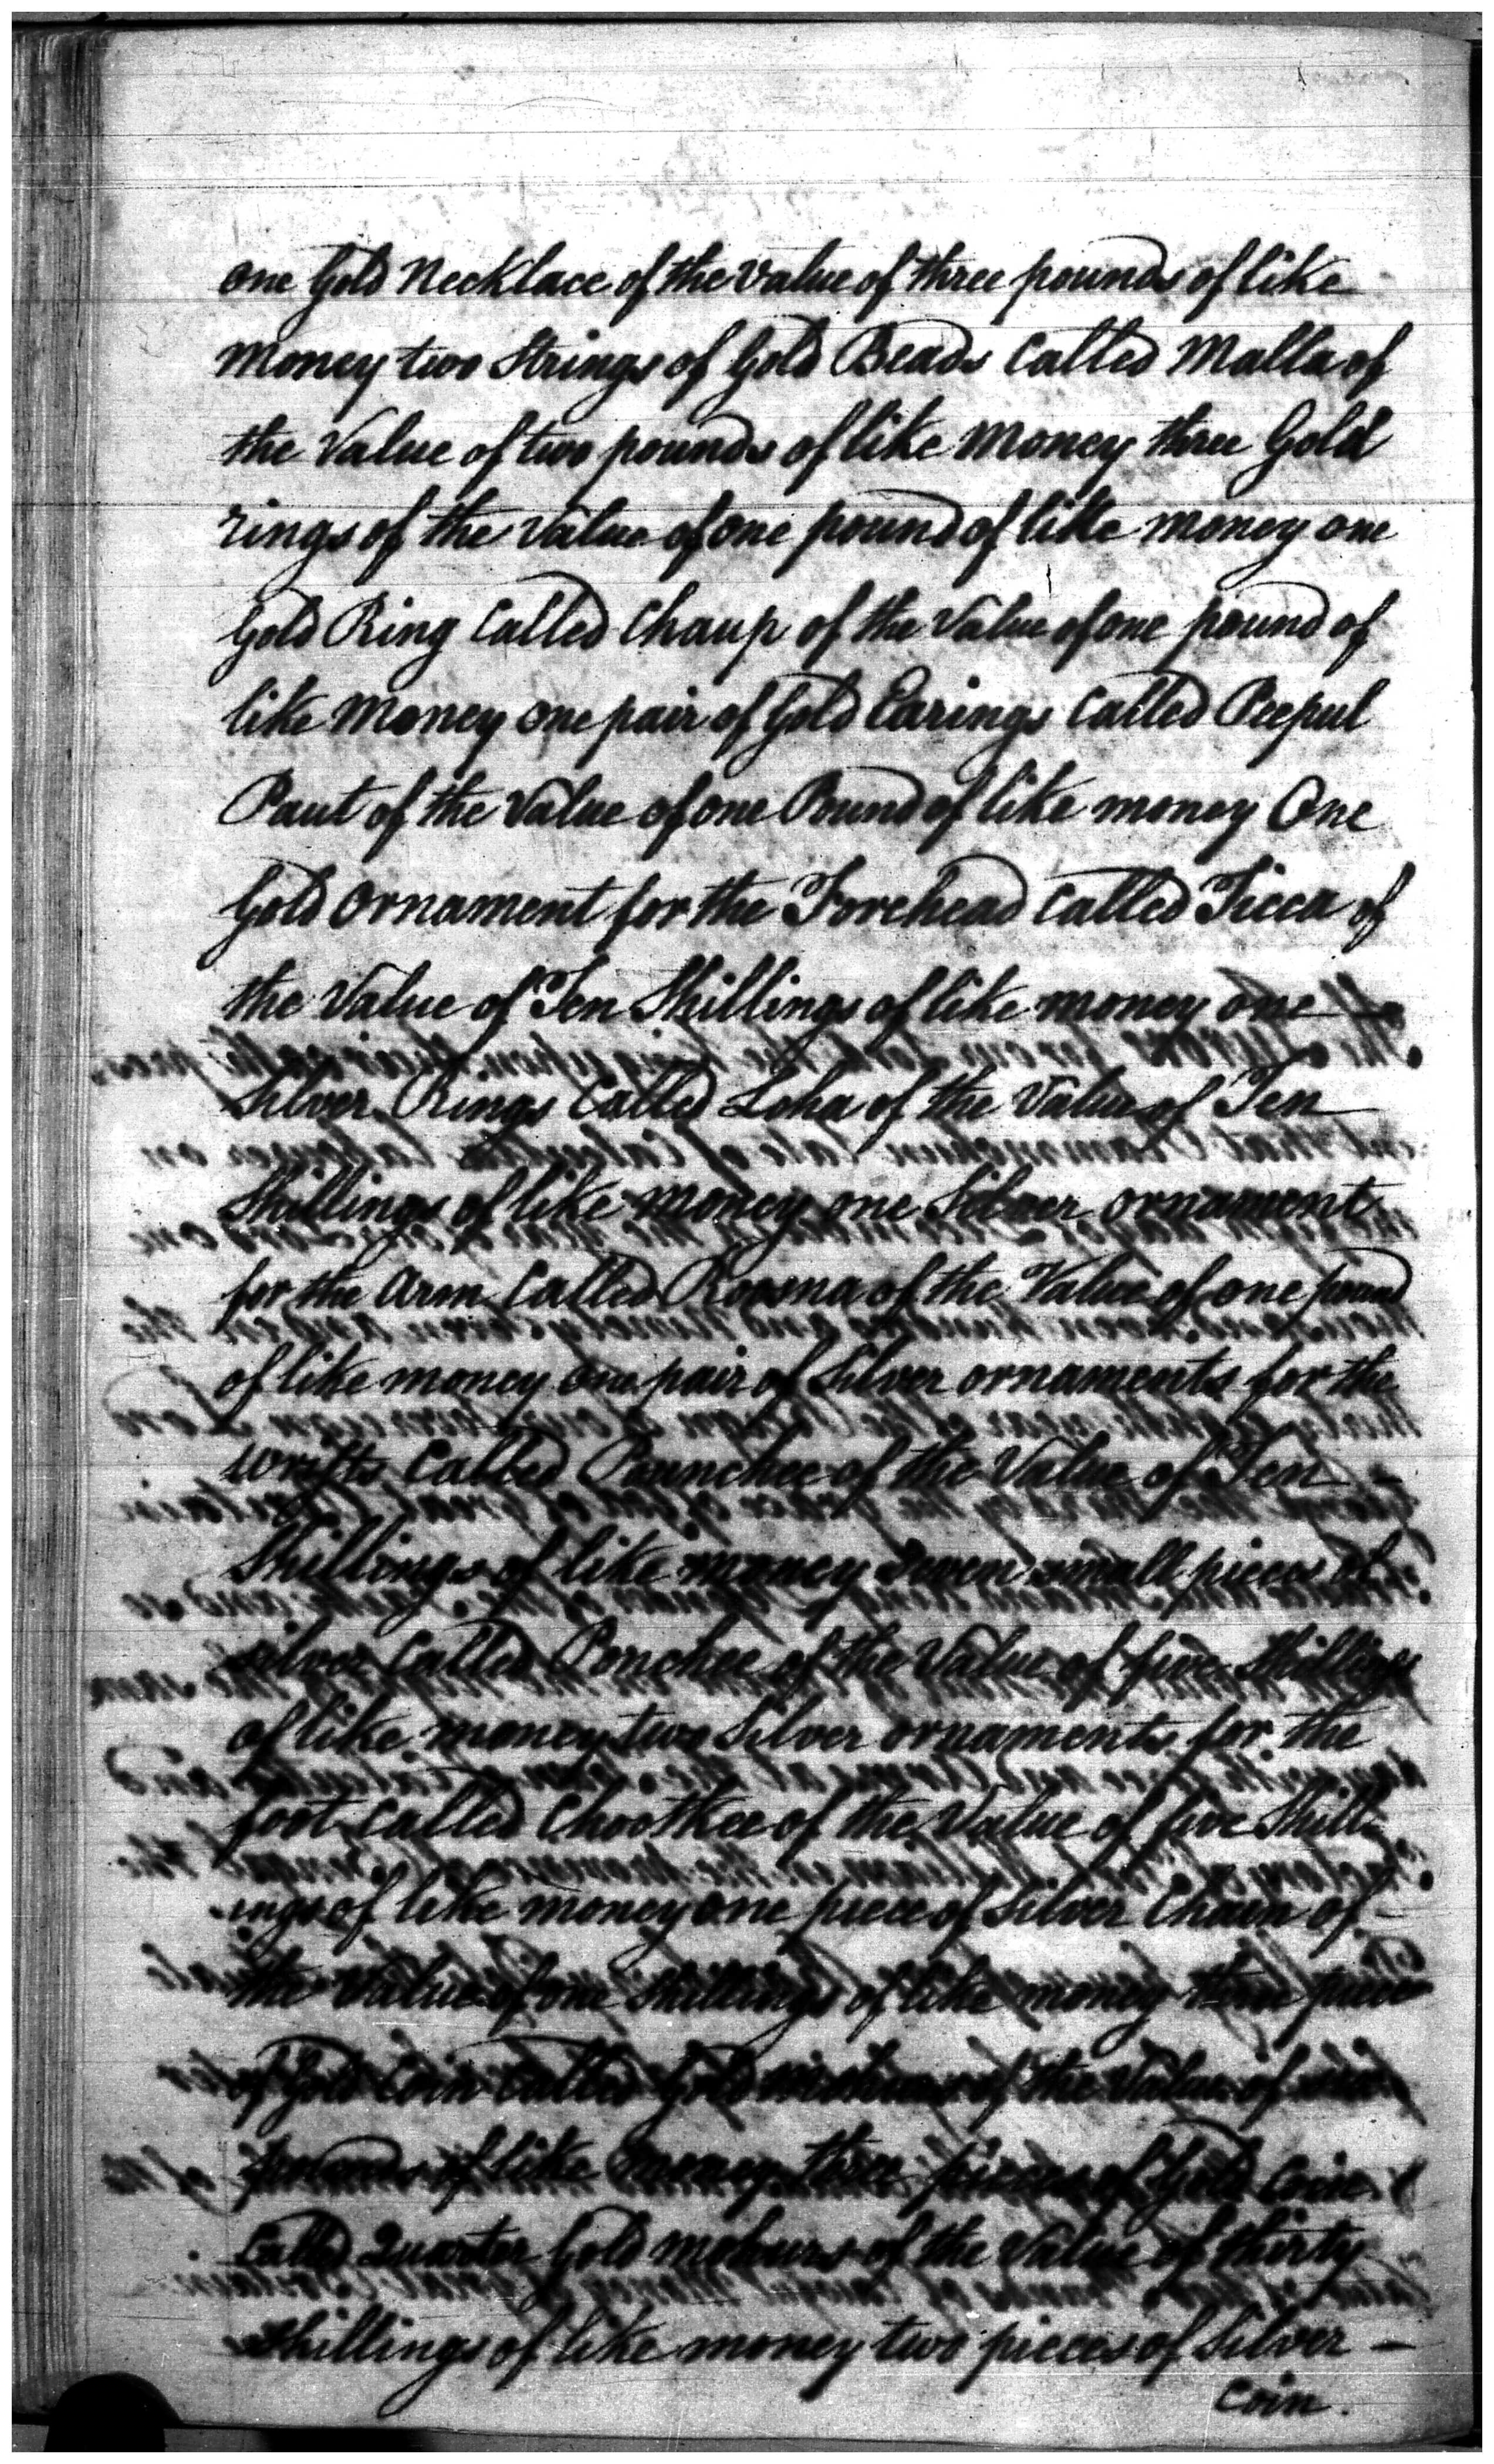 one Gold Necklace of the Value of three pounds of like
money two Strings of Gold Beads Called Malla of
the Value of two pounds of like Money three Gold
rings of the Value of one pound of like money one
Gold Ring Called Chaup of the Value of one pound of
like Money one pair of Gold Earings Called Peepul
Paut of the Value of one Pound of like money One
Gold Ornament for the Forehead Called Ticca of
the Value of Ten Shillings of like money one
Silver Rings Called Loha of the Value of Ten
Shillings of like money one Silver ornament
for the Arm Called Roosna of the Value of one pound
of like money one pair of Silver ornaments for the
wrists Called Paunchee of the Value of Ten
Shillings of like money Seven small pieces of
silver Called Ponchee of the Value of five Shillings
of like money two Silver ornaments for the
foot Called Chootkee of the Value of five Shill
ings of like money one piece of Silver Chain of
the Value of one Shillings of like money three pieces
of Gold Coin Called Gold Mohurs of the Value of
pounds of like Money three pieces of Gold Coin
Called Quarter Gold mohurs of the Value of thirty
Shillings of like money two pieces of Silver
Coin.